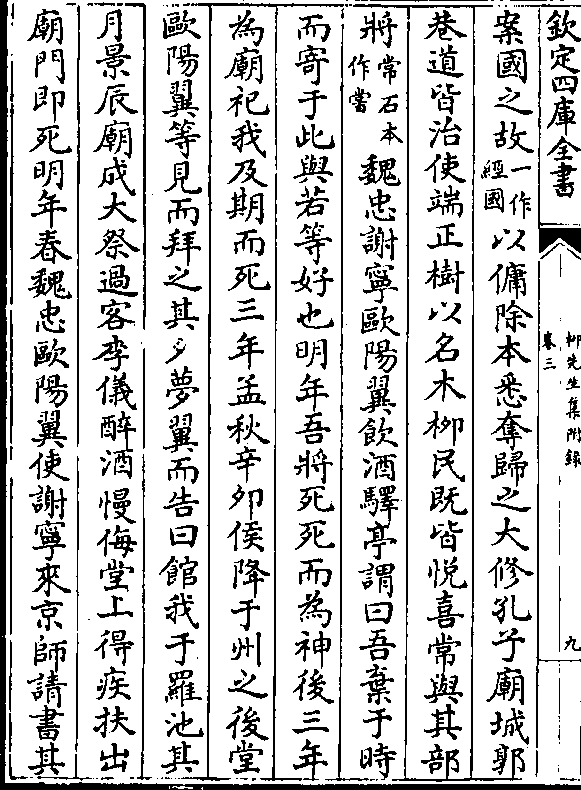 欽定四庫全書
柳先生集附錄
卷三
九
案國之故一作經國以傭除本悉奪歸之大修孔子廟城郭
巷道皆治使端正樹以名木柳民既皆悅喜常與其部
將常石本作嘗魏忠謝寧歐陽翼飲酒驛亭謂曰吾棄于時
而寄于此與若等好也明年吾將死死而為神後三年
為廟祀我及期而死三年孟秋辛夘侯降于州之後堂
歐陽翼等見而拜之其夕夢翼而告曰館我于羅池其
月景辰廟成大祭過客李儀醉酒慢侮堂上得疾扶出
廟門即死明年春魏忠歐陽翼使謝寧來京師請書其